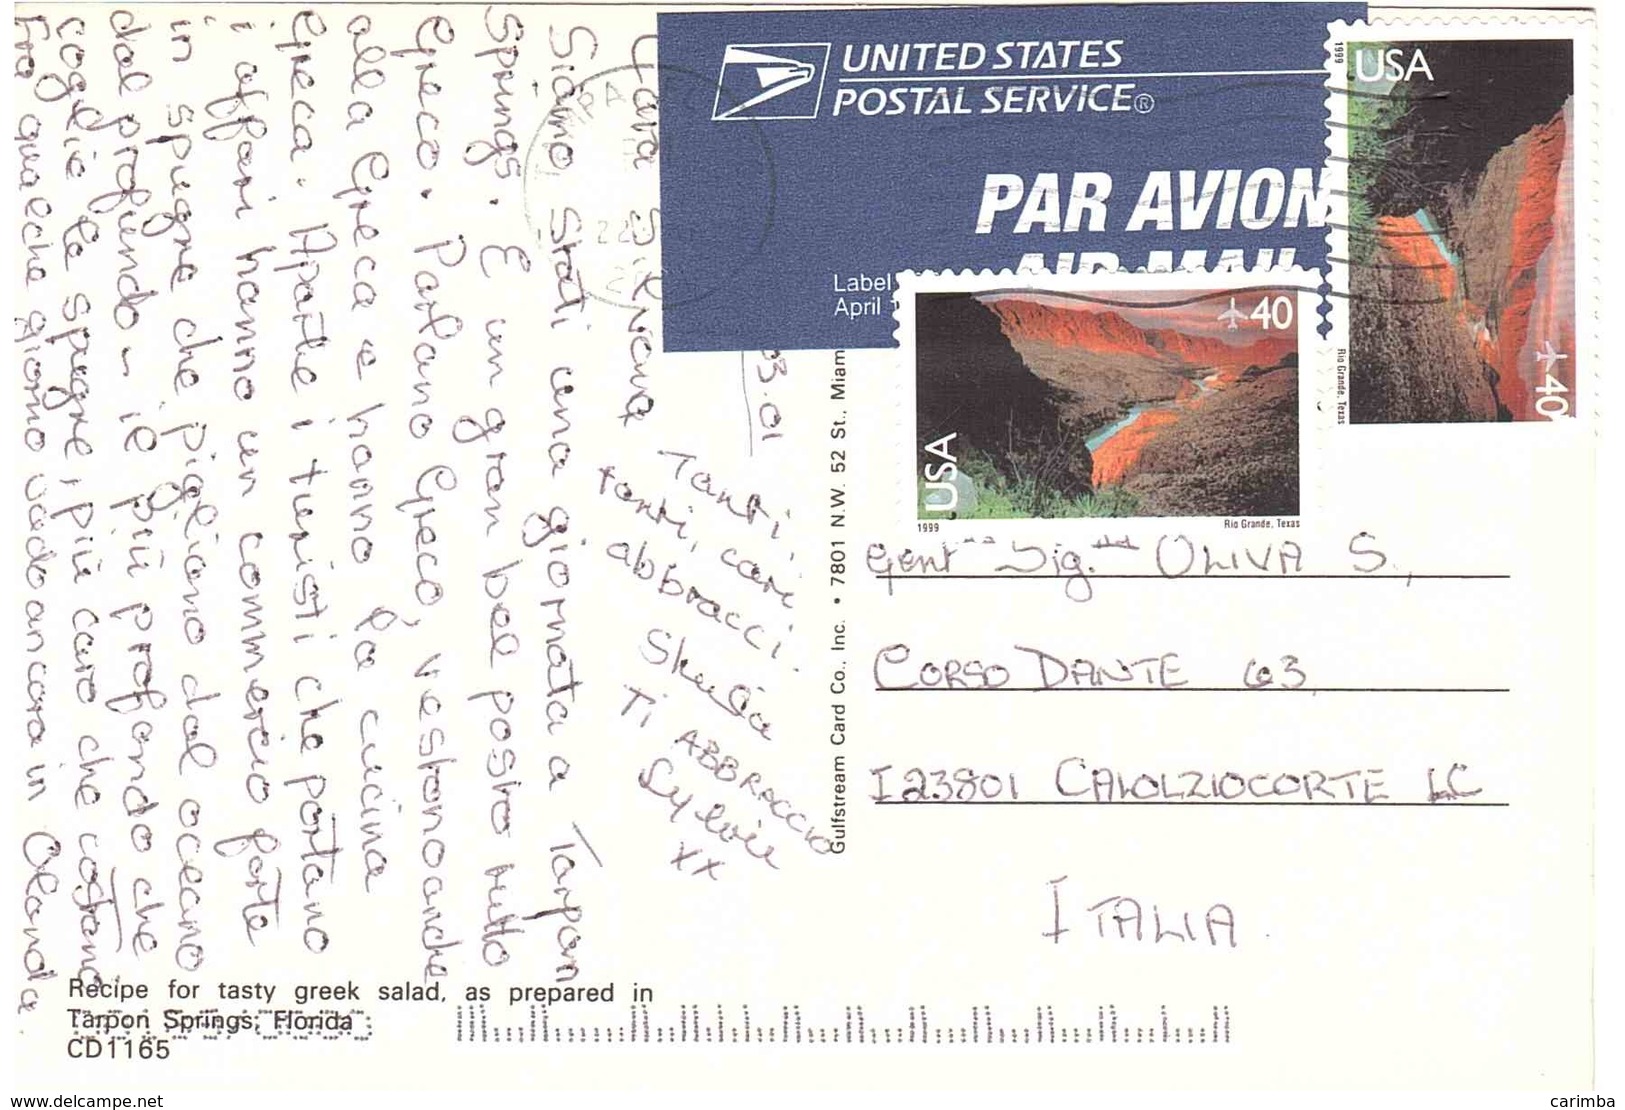 Cara Silvana
Siamo stati una giornata a Tarpon
Springs. E un gran bel posto tutto
Greco. Parlano Greco, vestono anche
alla Greca e hanno la cucina
Greca. Aparte i turisti che portano
i affari hanno un commercio forte
in spugne che pigliano dal oceano
dal profundo - ie più profondo che
coglie le spugne, più caro che costano
Fra qualche giorno vado ancora in Olanda.
03.01
Tanti,
tanti, cari
abbracci.
Ti ABBRACCIO
Sylvie
xx
Recipe for tasty greek salad, as prepared in
Tarpon Springs, Florida
CD1165
Gulfstream Card Co., Inc. • 7801 N.W. 52 St., Miam
UNITED STATES
POSTAL SERVICE®
PAR AVION
AIR MAIL
Label
April
1999
USA
40
Rio Grande, Texas
USA
40
1999
Rio Grande, Texas
Gent Sig. OLIVA S,
CORSO DANTE 63
I 23801 CALOLZIOCORTE LC
ITALIA.
www.delcampe.net
carimba